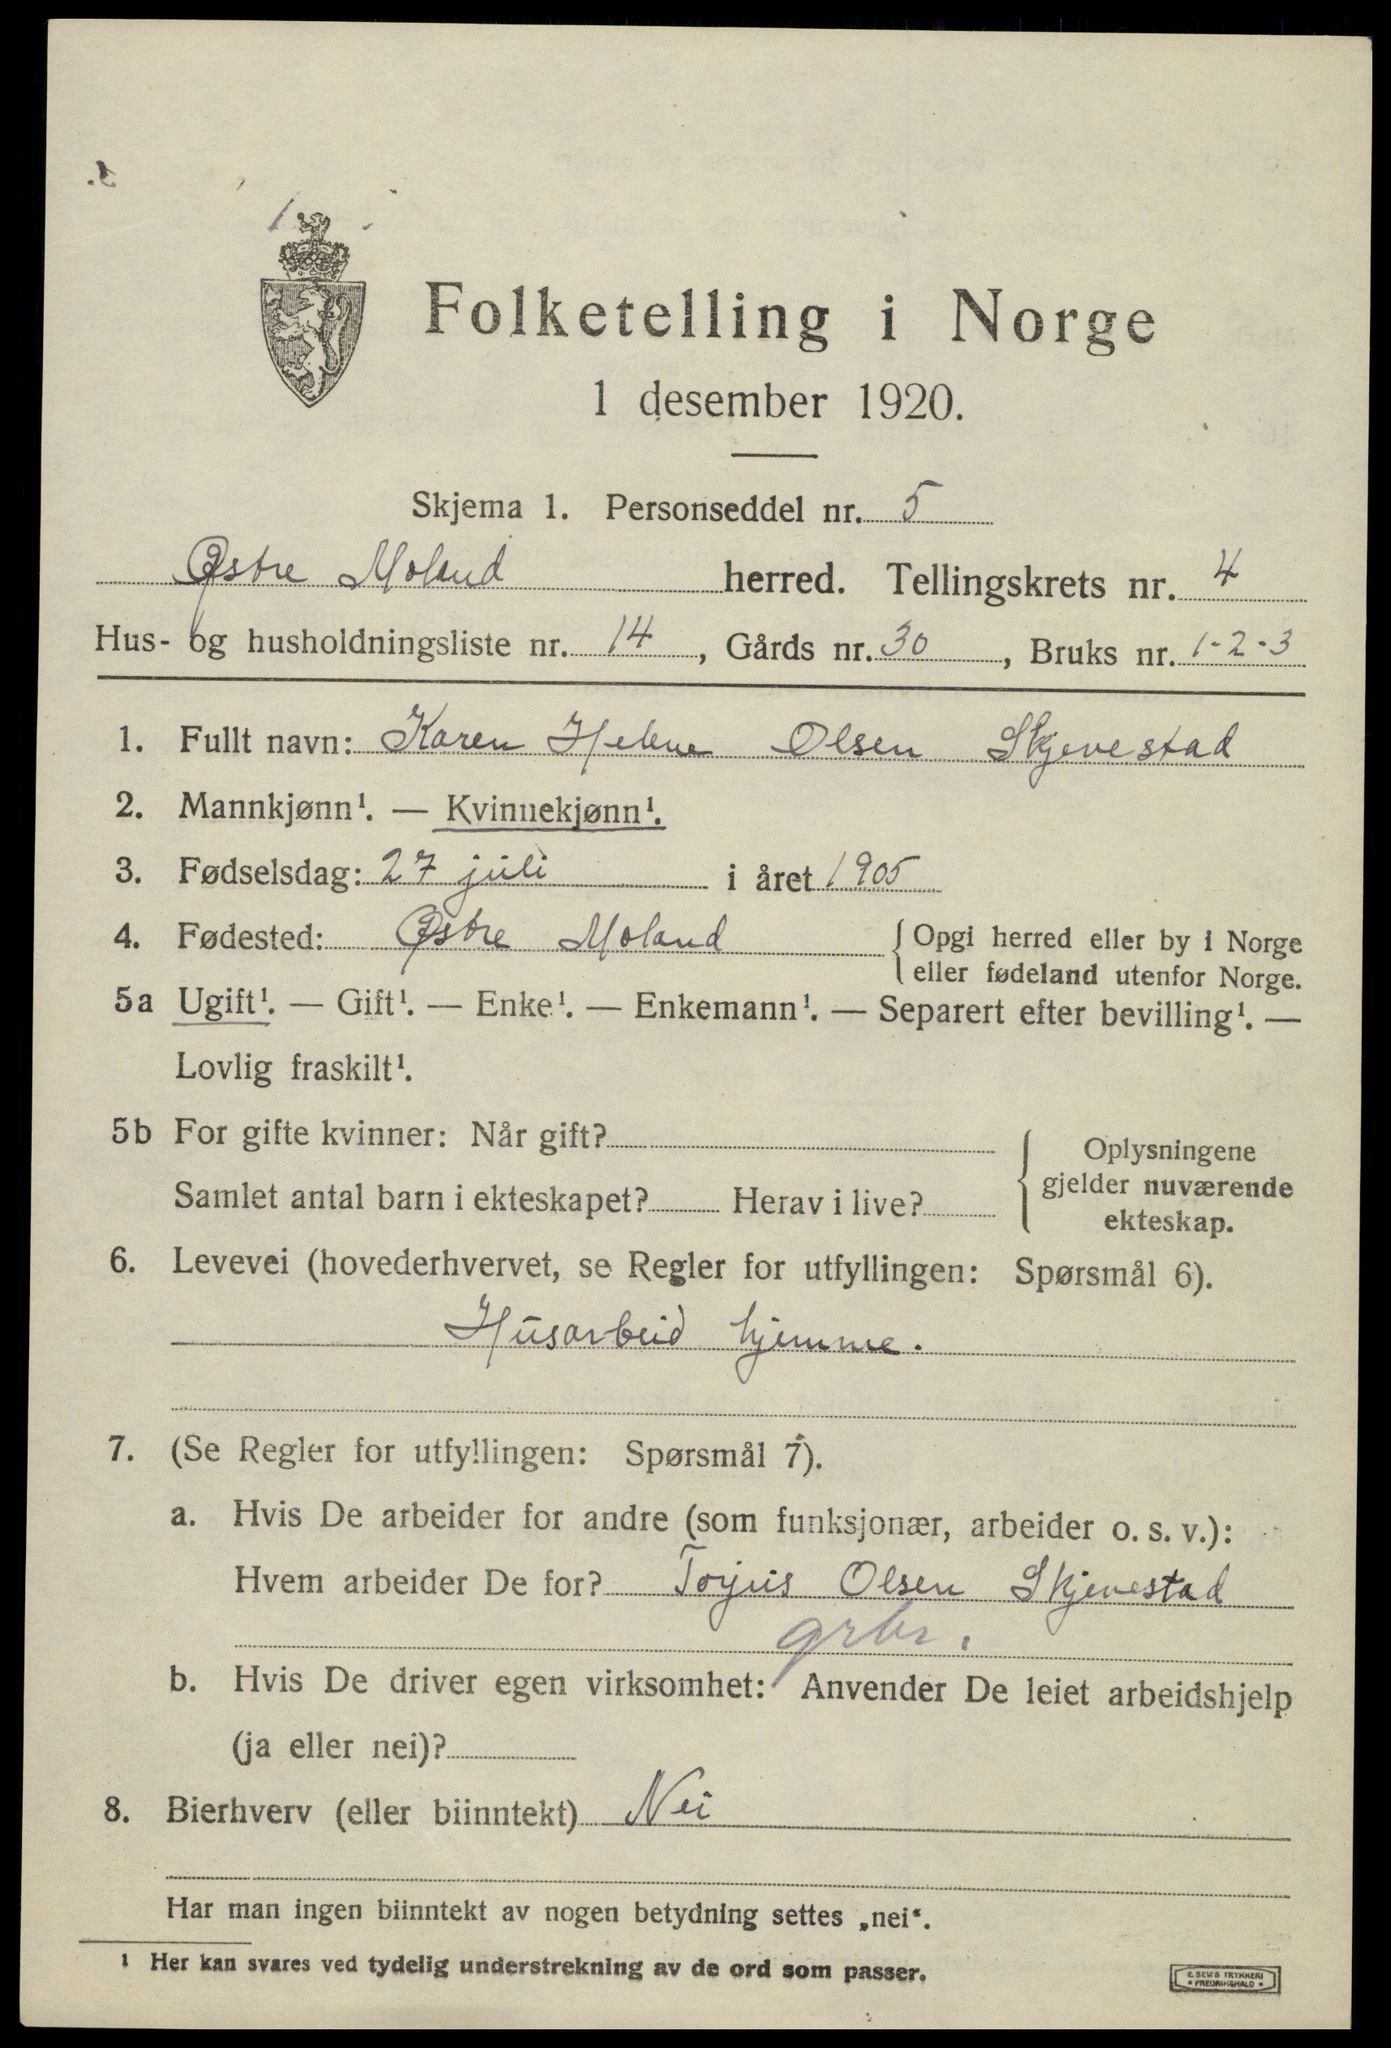 Folketelling i Norge
1 desember 1920.
Skjema 1. Personseddel nr. 5
Østre Moland herred. Tellingskrets nr. 4
Hus- og husholdningsliste nr. 14, Gårds nr. 30, Bruks nr. 1-2-3
1. Fullt navn: Karen Helene Olsen Skjevestad
2. Mannkjønn¹. — Kvinnekjønn¹.
3. Fødselsdag: 27 juli i året 1905
4. Fødested: Østre Moland { Opgi herred eller by i Norge
eller fødeland utenfor Norge.
5a Ugift¹. — Gift¹. — Enke¹. — Enkemann¹. — Separert efter bevilling¹. —
Lovlig fraskilt¹.
5b For gifte kvinner: Når gift?
Samlet antal barn i ekteskapet? Herav i live?
{ Oplysningene
gjelder nuværende
ekteskap.
6. Levevei (hovederhvervet, se Regler for utfyllingen: Spørsmål 6).
Husarbeid hjemme.
7. (Se Regler for utfyllingen: Spørsmål 7).
a. Hvis De arbeider for andre (som funksjonær, arbeider o. s. v.):
Hvem arbeider De for? Torjus Olsen Skjevestad
grbr.
b. Hvis De driver egen virksomhet: Anvender De leiet arbeidshjelp
(ja eller nei)?
8. Bierhverv (eller biinntekt) Nei
Har man ingen biinntekt av nogen betydning settes „nei“.
¹ Her kan svares ved tydelig understrekning av de ord som passer.
E. SEM'S TRYKKERI
• FREDRIKSHALD •